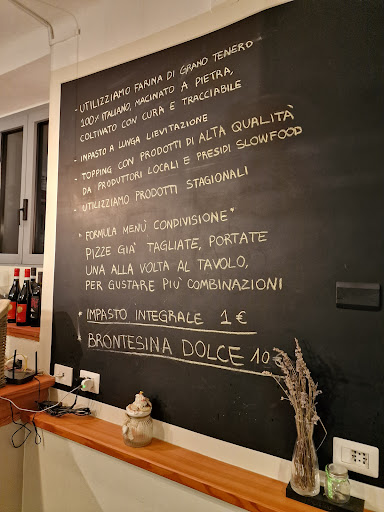 - UTILIZZIAMO FARINA DI GRANO TENERO
100% ITALIANO, MACINATO A PIETRA,
COLTIVATO CON CURA E TRACCIABILE
- IMPASTO A LUNGA LIEVITAZIONE
- TOPPING CON PRODOTTI DI ALTA QUALITÀ
DA PRODUTTORI LOCALI E PRESIDI SLOWFOOD
- UTILIZZIAMO PRODOTTI STAGIONALI
"FORMULA MENÙ CONDIVISIONE"
PIZZE GIÀ TAGLIATE, PORTATE
UNA ALLA VOLTA AL TAVOLO,
PER GUSTARE PIÙ COMBINAZIONI
* IMPASTO INTEGRALE 1 €
* BRONTESINA DOLCE 10